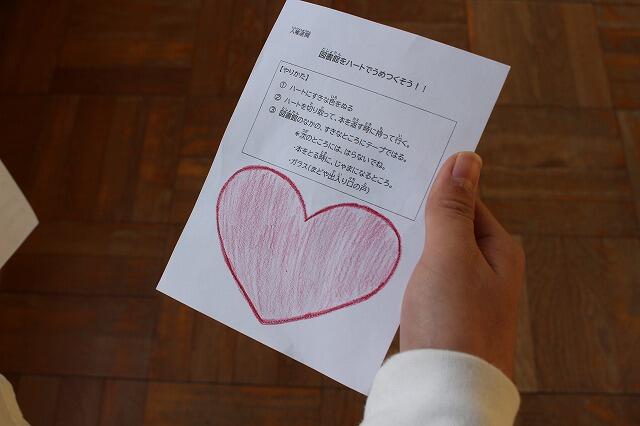 図書館をハートでうめつくそう！！
【やりかた】
① ハートにすきな色をぬる
② ハートを切り取って、本を返す時に持って行く。
③ 図書館のなかの、すきなところにテープではる。
＊次のところには、はらないでね。
・本をとる時に、じゃまになるところ。
・ガラス（まどや出入り口の